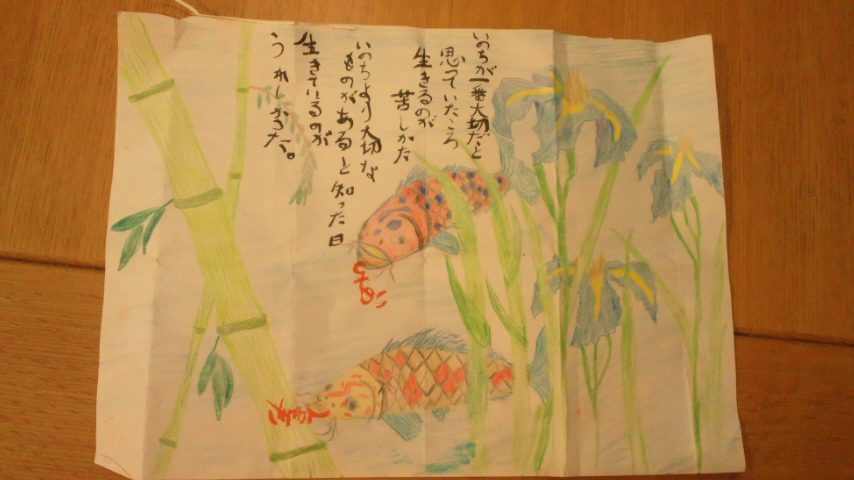 いのちが一番大切だと
思っていたころ
生きるのが
苦しかった
いのちより大切な
ものがあると知った日
生きているのが
うれしかった。